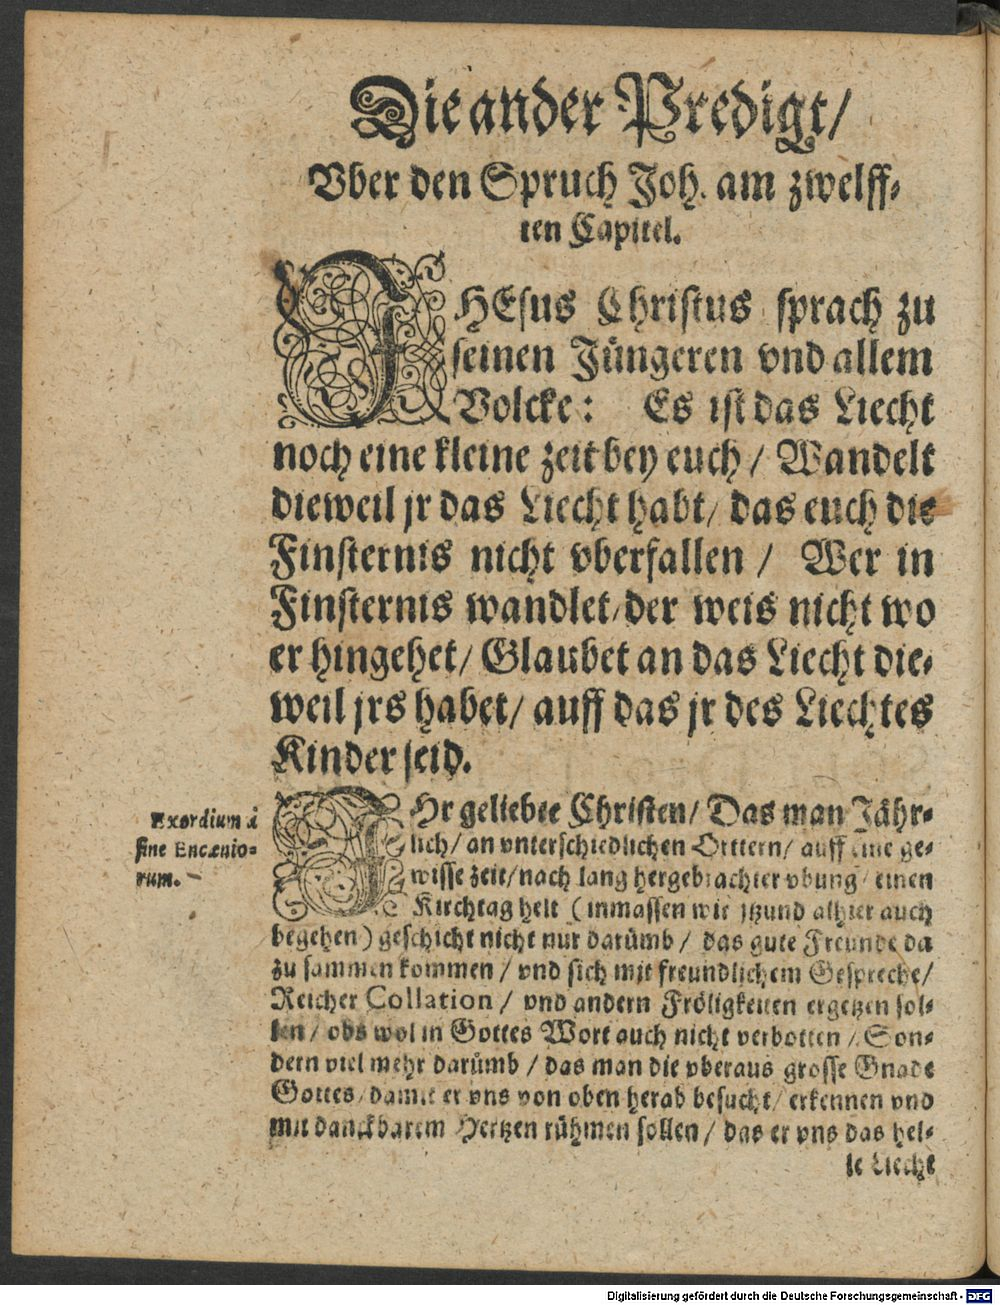 Die ander Predigt/
Vber den Spruch Joh. am zwelff-
ten Capitel.
JHEsus Christus sprach zu
seinen Jüngeren vnd allem
Volcke: Es ist das Liecht
noch eine kleine zeit bey euch / Wandelt
dieweil jr das Liecht habt / das euch die
Finsternis nicht vberfallen / Wer in
Finsternis wandlet / der weis nicht wo
er hingehet / Glaubet an das Liecht die-
weil jrs habet / auff das jr des Liechtes
Kinder seid.
Exordium à
fine Encænio-
rum.
IHr geliebte Christen / Das man Jähr-
lich / an vnterschiedlichen Orttern / auff eine ge-
wisse zeit / nach lang hergebrachter vbung / einen
Kirchtag helt (inmassen wir jtzund alhier auch
begehen) geschicht nicht nur darümb / das gute Freunde da
zu sammen kommen / vnd sich mit freundlichem Gespreche /
Reicher Collation / vnd andern Fröligkeiten ergetzen sol-
len / obs wol in Gottes Wort auch nicht verbotten / Son-
dern viel mehr darümb / das man die vberaus grosse Gnade
Gottes / damit er vns von oben herab besucht / erkennen vnd
mit danckbarem Hertzen rühmen sollen / das er vns das hel-
le Liecht
Digitalisierung gefördert durch die Deutsche Forschungsgemeinschaft - DFG